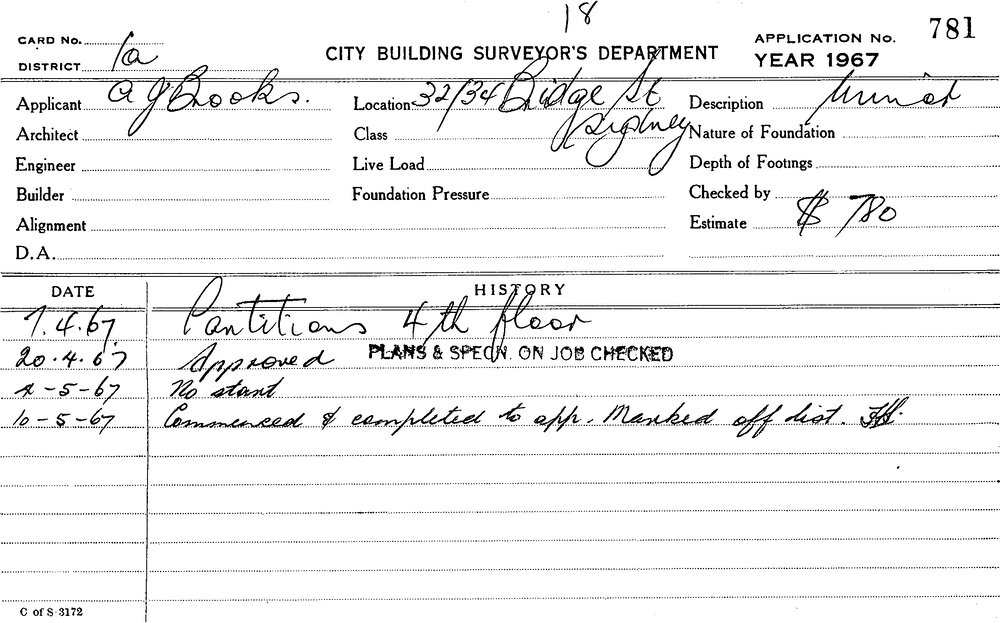 18
CARD No.
DISTRICT 1a
CITY BUILDING SURVEYOR'S DEPARTMENT
APPLICATION No. 781
YEAR 1967
Applicant A J Brooks.
Location 32/34 Bridge St Sydney
Description Minor
Architect
Class
Nature of Foundation
Engineer
Live Load
Depth of Footings
Builder
Foundation Pressure
Checked by
Alignment
Estimate $ 780
D.A.
DATE HISTORY
7.4.67. Partitions 4th floor
20.4.67 Approved PLANS & SPECN. ON JOB CHECKED
2-5-67 No start
10-5-67 Commenced & completed to app. Marked off dist.
C of S 3172